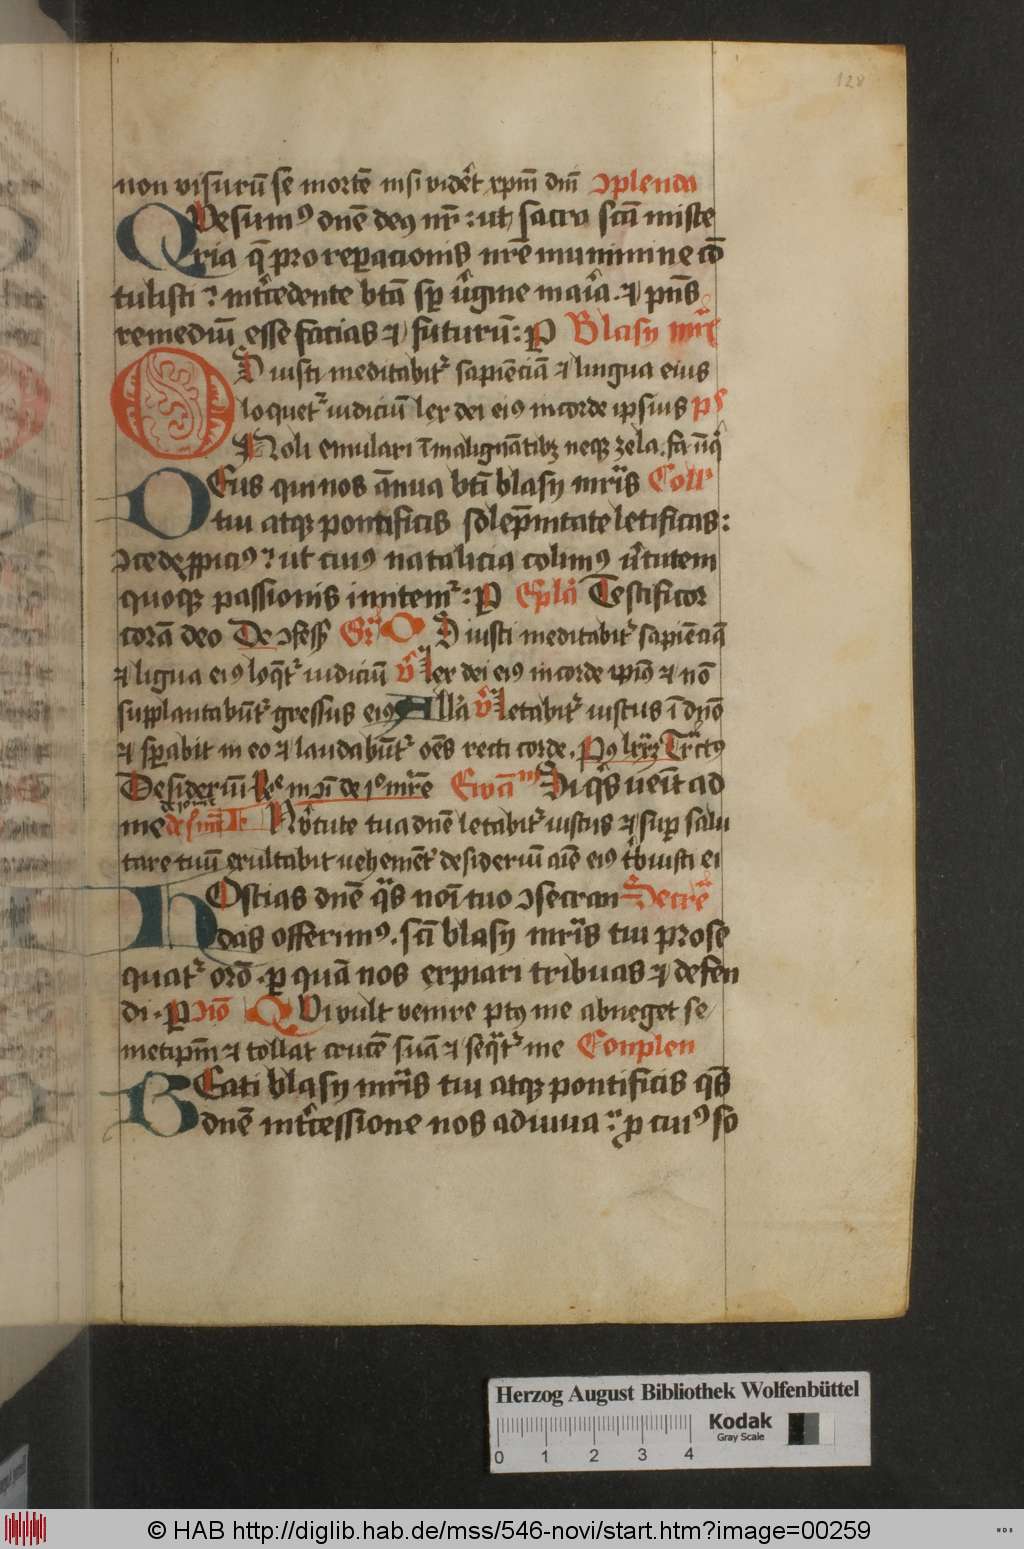 128
non visurū se mortē nisi vidēt xpm̄ dnī ꝯplenda
QVesumꝰ dnē deꝰ nr̄ : ut sacro sctā miste
ria q̄ pro reꝑacionis nrē munimine cō
tulisti ? int̄cedente btā sp̄ v̄gine mar̄ia ⁊ pn̄s
remediū esse facias ⁊ futurū : P Blasy mr̄is
OS iusti meditabitᷣ sapiēciā ⁊ lingua eius
loquetᷣ iudiciū lex dei eiꝰ in corde ipsius ps
Noli emulari ī malignātibꝫ neqꝫ zela. fa.
DEus qui nos ānua btī blasy mr̄is Coll
tui atqꝫ pontificis solēpnitate letificas :
ꝯcede ꝓpiciꝰ ? ut cuiꝰ natalicia colimꝰ v̄tutem
quoqꝫ passionis imitemᷣ : P Epla Testificor
corā deo De ꝯfess Gr̄ OS iusti meditabitᷣ sapiēciā
⁊ ligua eiꝰ loqt̄ᷣ iudiciū v̄ lex dei eiꝰ in corde ipiꝰ ⁊ nō
supplantabūtᷣ gressus eiꝰ Alla v̄ letabitᷣ iustus ī dnō
⁊ sperabit in eo ⁊ laudabūtᷣ oēs recti corde. Tr̄ctꝰ
Desideriū de mr̄e Ewām Si q̄s venit ad
me IN v̄tute tua dnē letabitᷣ iustus ⁊ super salu
tare tuū exultabit vehemēt desideriū aīe eiꝰ t̄buisti ei
HOstias dnē q̄s noī tuo ꝯsecran Secrē
das offerimꝰ . scī blasy mr̄is tui prose
quatᷣ orō . ꝑ quā nos expiari tribuas ⁊ defen
di . P ꝯiō QVi vult venire pꝰ me abneget se
metipm̄ ⁊ tollat crucē suā ⁊ seqt̄ᷣ me Conplen
BEati blasy mr̄is tui atqꝫ pontificis qs̄
dnē int̄cessione nos adiuua : ꝓ cuiꝰ so
Herzog August Bibliothek Wolfenbüttel
Kodak
Gray Scale
0 1 2 3 4
© HAB http://diglib.hab.de/mss/546-novi/start.htm?image=00259